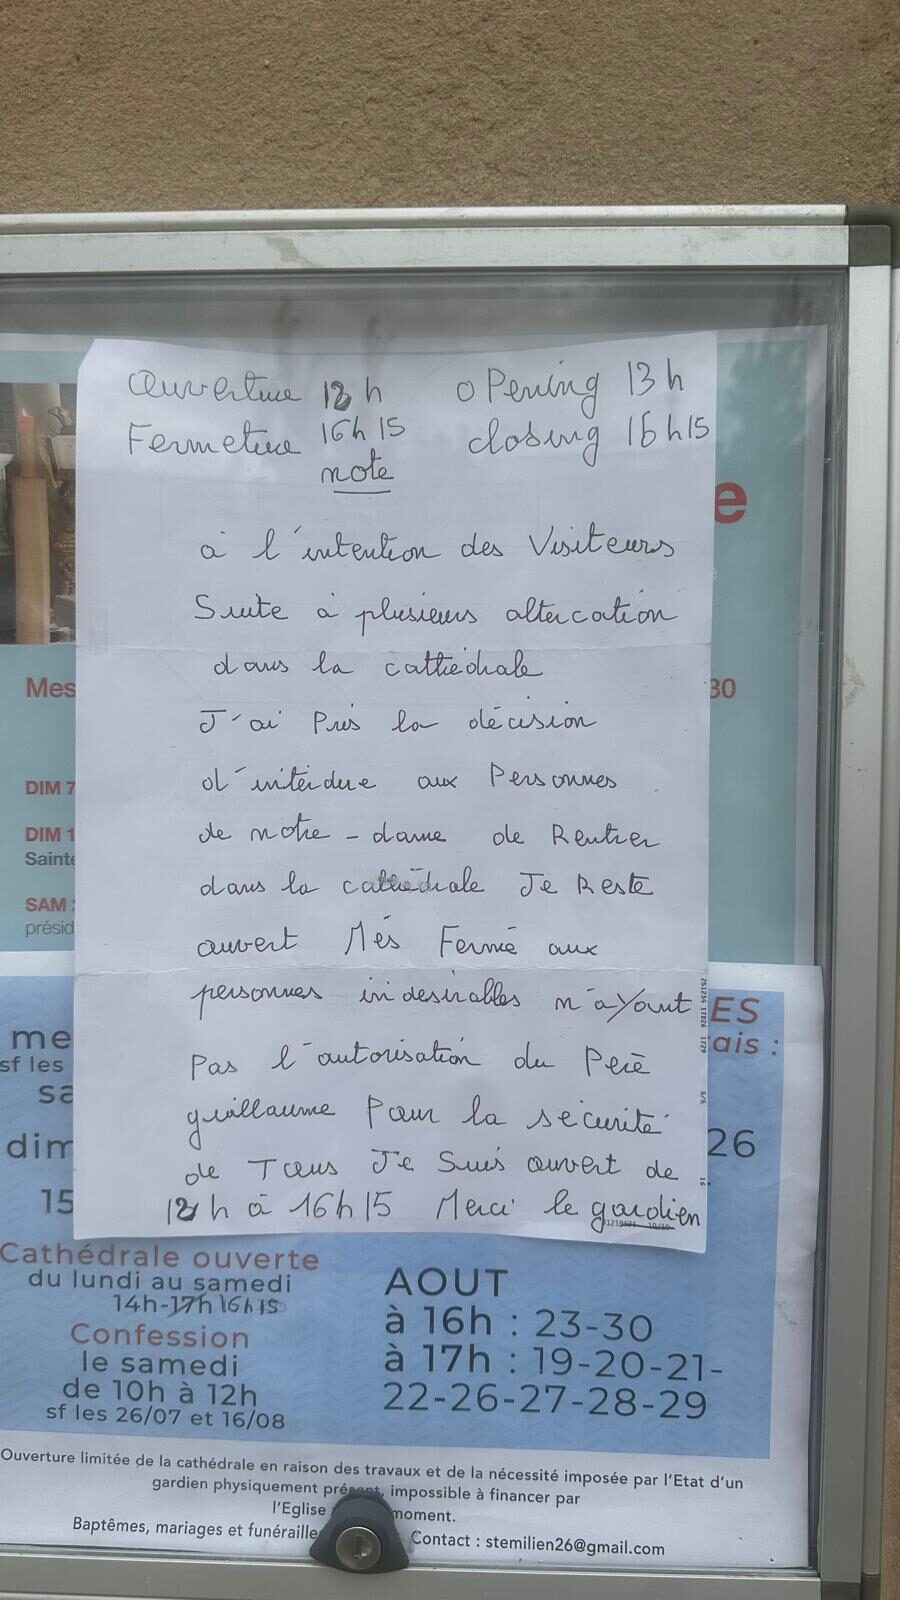 Ouverture 13 h opening 13 h
Fermeture 16h15 closing 16h15
note
à l'intention des Visiteurs
Suite à plusieurs altercation
dans la cathédrale
J'ai Pris la décision
d'interdire aux Personnes
de notre-dame de Rentrer
dans la cathédrale Je Reste
ouvert Més Fermé aux
personnes indésirables n'ayant
Pas l'autorisation du Père
guillaume Pour la sécurité
de Tous Je Suis ouvert de
13 h à 16h15 Merci le gardien
e
Mes
30
DIM 7
DIM 1
Sainte
SAM
présid
ES
me
ais :
sf les
sa
dim
26
15
Cathédrale ouverte
du lundi au samedi
14h-17h 16h15
Confession
le samedi
de 10h à 12h
sf les 26/07 et 16/08
AOUT
à 16h : 23-30
à 17h : 19-20-21-
22-26-27-28-29
Ouverture limitée de la cathédrale en raison des travaux et de la nécessité imposée par l'Etat d'un
gardien physiquement présent, impossible à financer par
l'Eglise moment.
Baptêmes, mariages et funéraille Contact : stemilien26@gmail.com